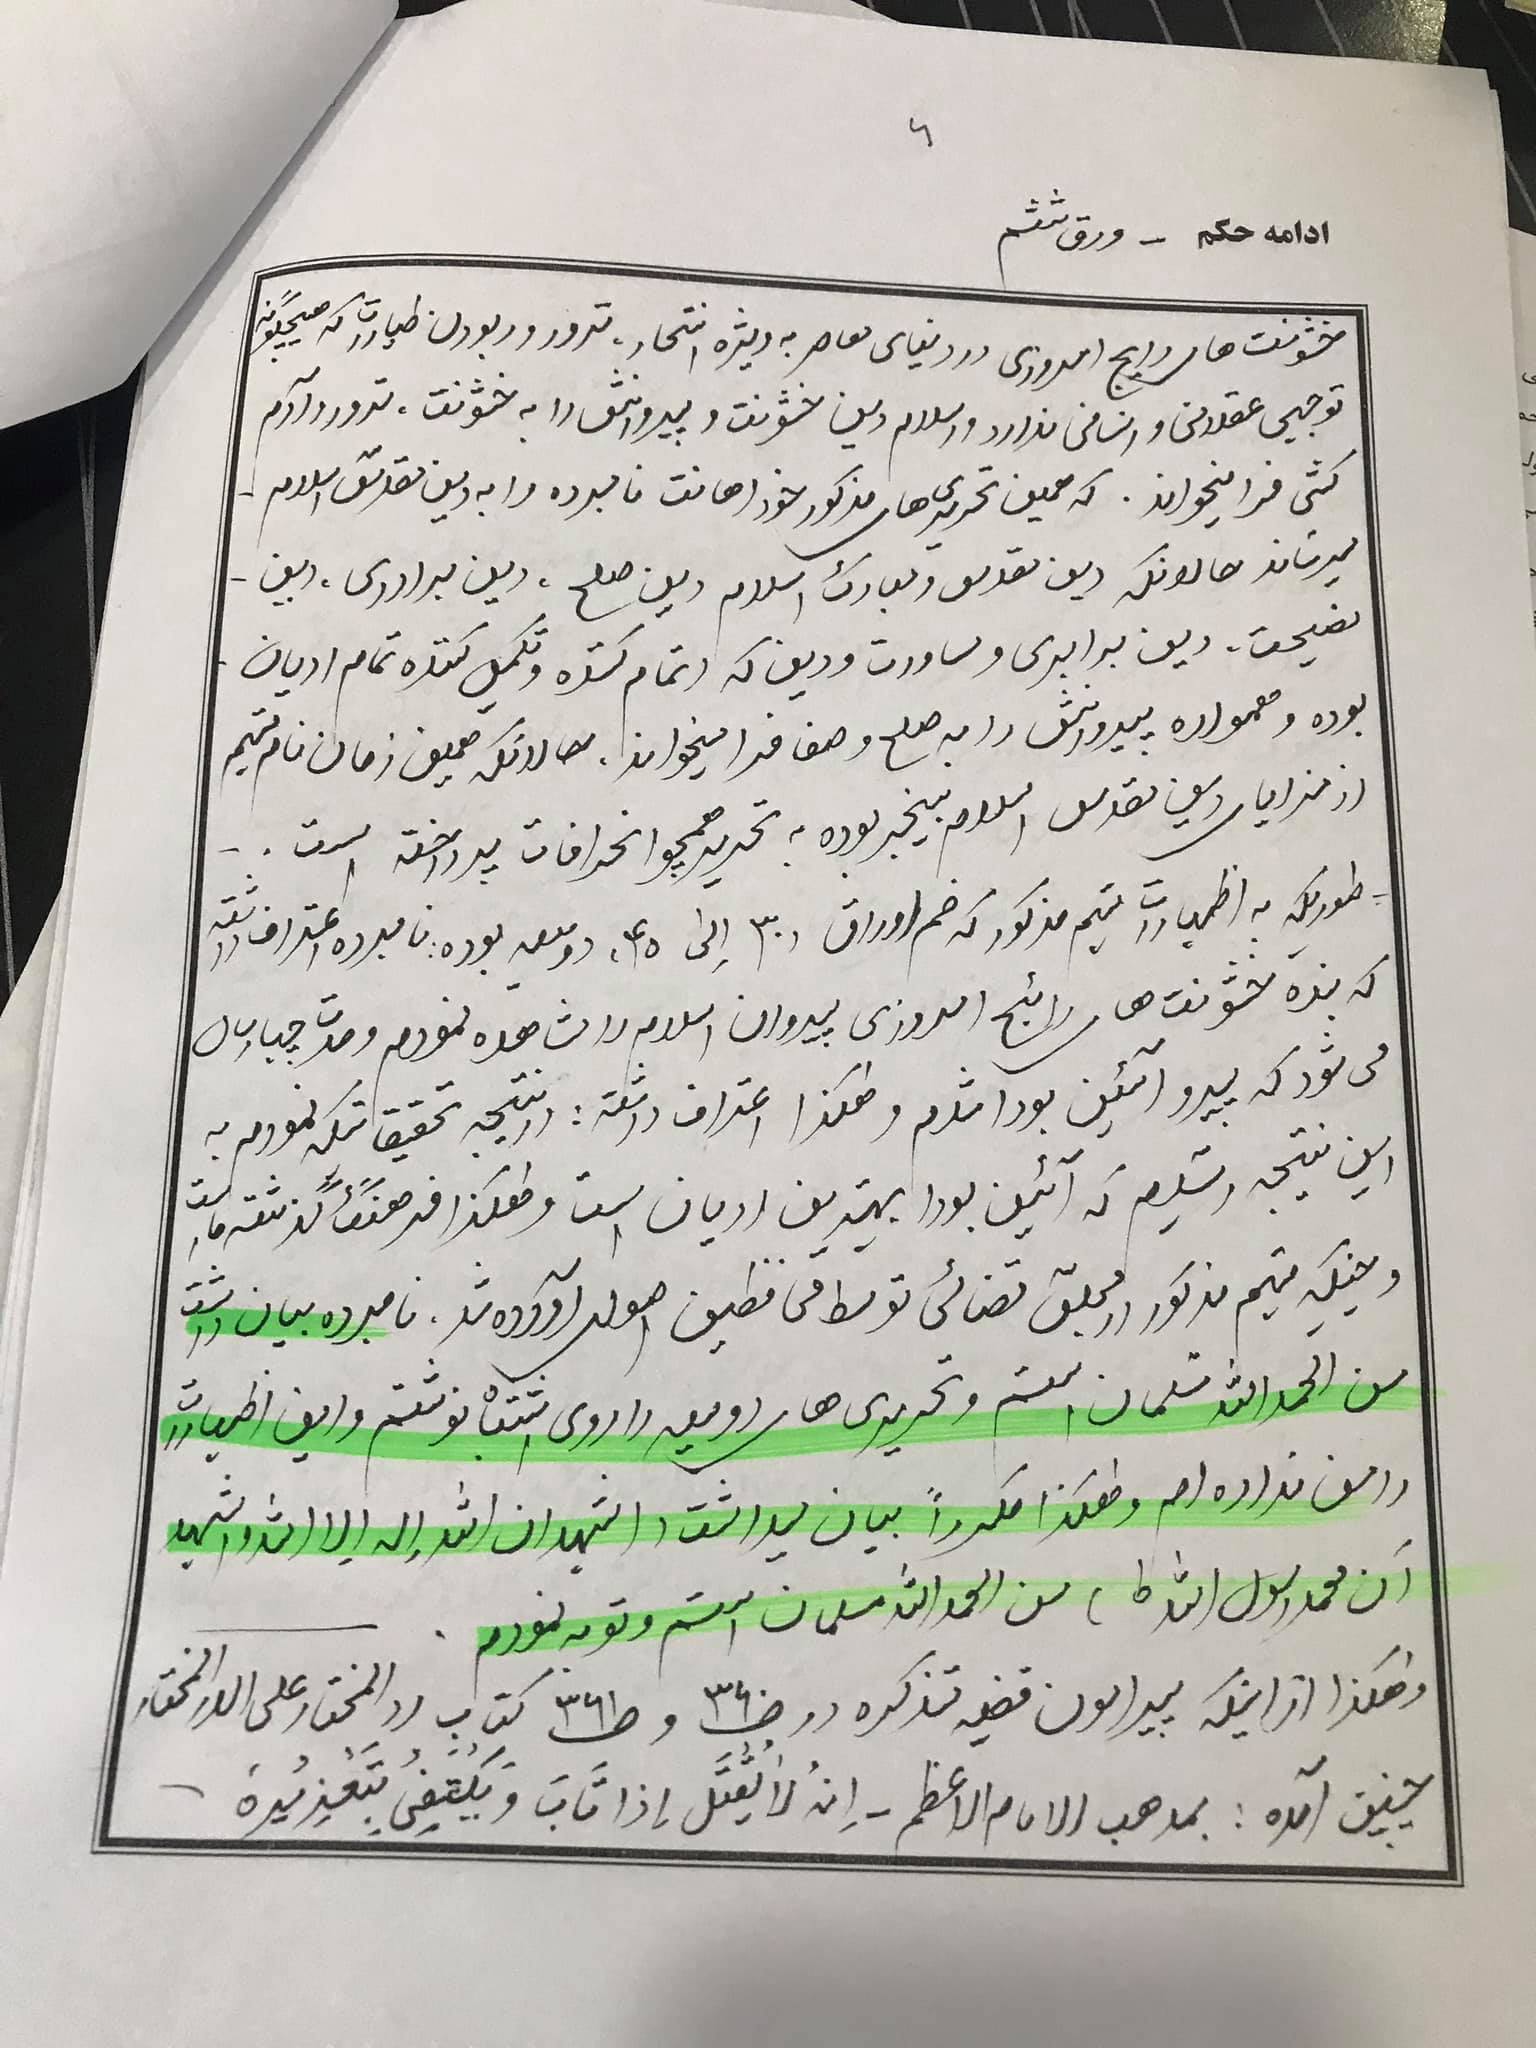 ۶
ادامه حکم - ورق ششم
خشونت های رایج امروزی در دنیای معاصر به ویژه انتحار، ترور و ربودن طیارات که هیچگونه
توجیهی عقلانی و انسانی ندارد و اسلام دین خشونت و پیروانش را به خشونت، ترور و آدم
کشی فرا میخواند. که همین تحریری های مذکور خود اهانت نامبرده را به دین مقدس اسلام -
میرساند حالانکه دین مقدس و مبارک اسلام دین صلح، دین برادری، دین -
نصیحت، دین برابری و مساورت و دین که اتمام کننده و تکمیل کننده تمام ادیان -
بوده و همواره پیروانش را به صلح و صفا فرا میخواند. حالانکه همین زمان نام متهم
از مزایای دین مقدس اسلام بیخبر بوده به تحریر همچو انحرافات پرداخته است. -
- طوریکه به اظهارات متهم مذکور که ضم اوراق ۳۰، الی ۴۵، دوسیه بوده: نامبرده اعتراف داشته
که بنده خشونت های رائج امروزی پیروان اسلام را مشاهده نمودم و مدت چهار سال
می شود که پیرو آئین بودا شدم و هکذا اعتراف داشته: در نتیجه تحقیقاتیکه نمودم به
این نتیجه رسیدم که آئین بودا بهترین ادیان است و هکذا فرهنگ گذشته ما است
و حینیکه متهم مذکور در مجلس قضائی توسط محافظین اصولی آورده شد. نامبرده بیان داشت
من الحمد الله مسلمان استم و تحریری های دوسیه را روی اشتباه نوشتم و این اظهارات
را من نداده ام و هکذا مکرراً بیان میداشت (اشهد ان الله اله الا الله و اشهد
ان محمد رسول الله ط) من الحمد الله مسلمان استم و توبه نمودم.
و هکذا از اینکه پیرامون قضیه متذکره در ص ۳۶۰ و ص ۳۶۱ کتاب رد المختار علی الدر المختار
چنین آمده: بمذهب الامام الاعظم - اِنهُ لاٰ یُقتَل اِذا تَابَ وَ یَکتَفِی بِتَعزِیرِهٖ -